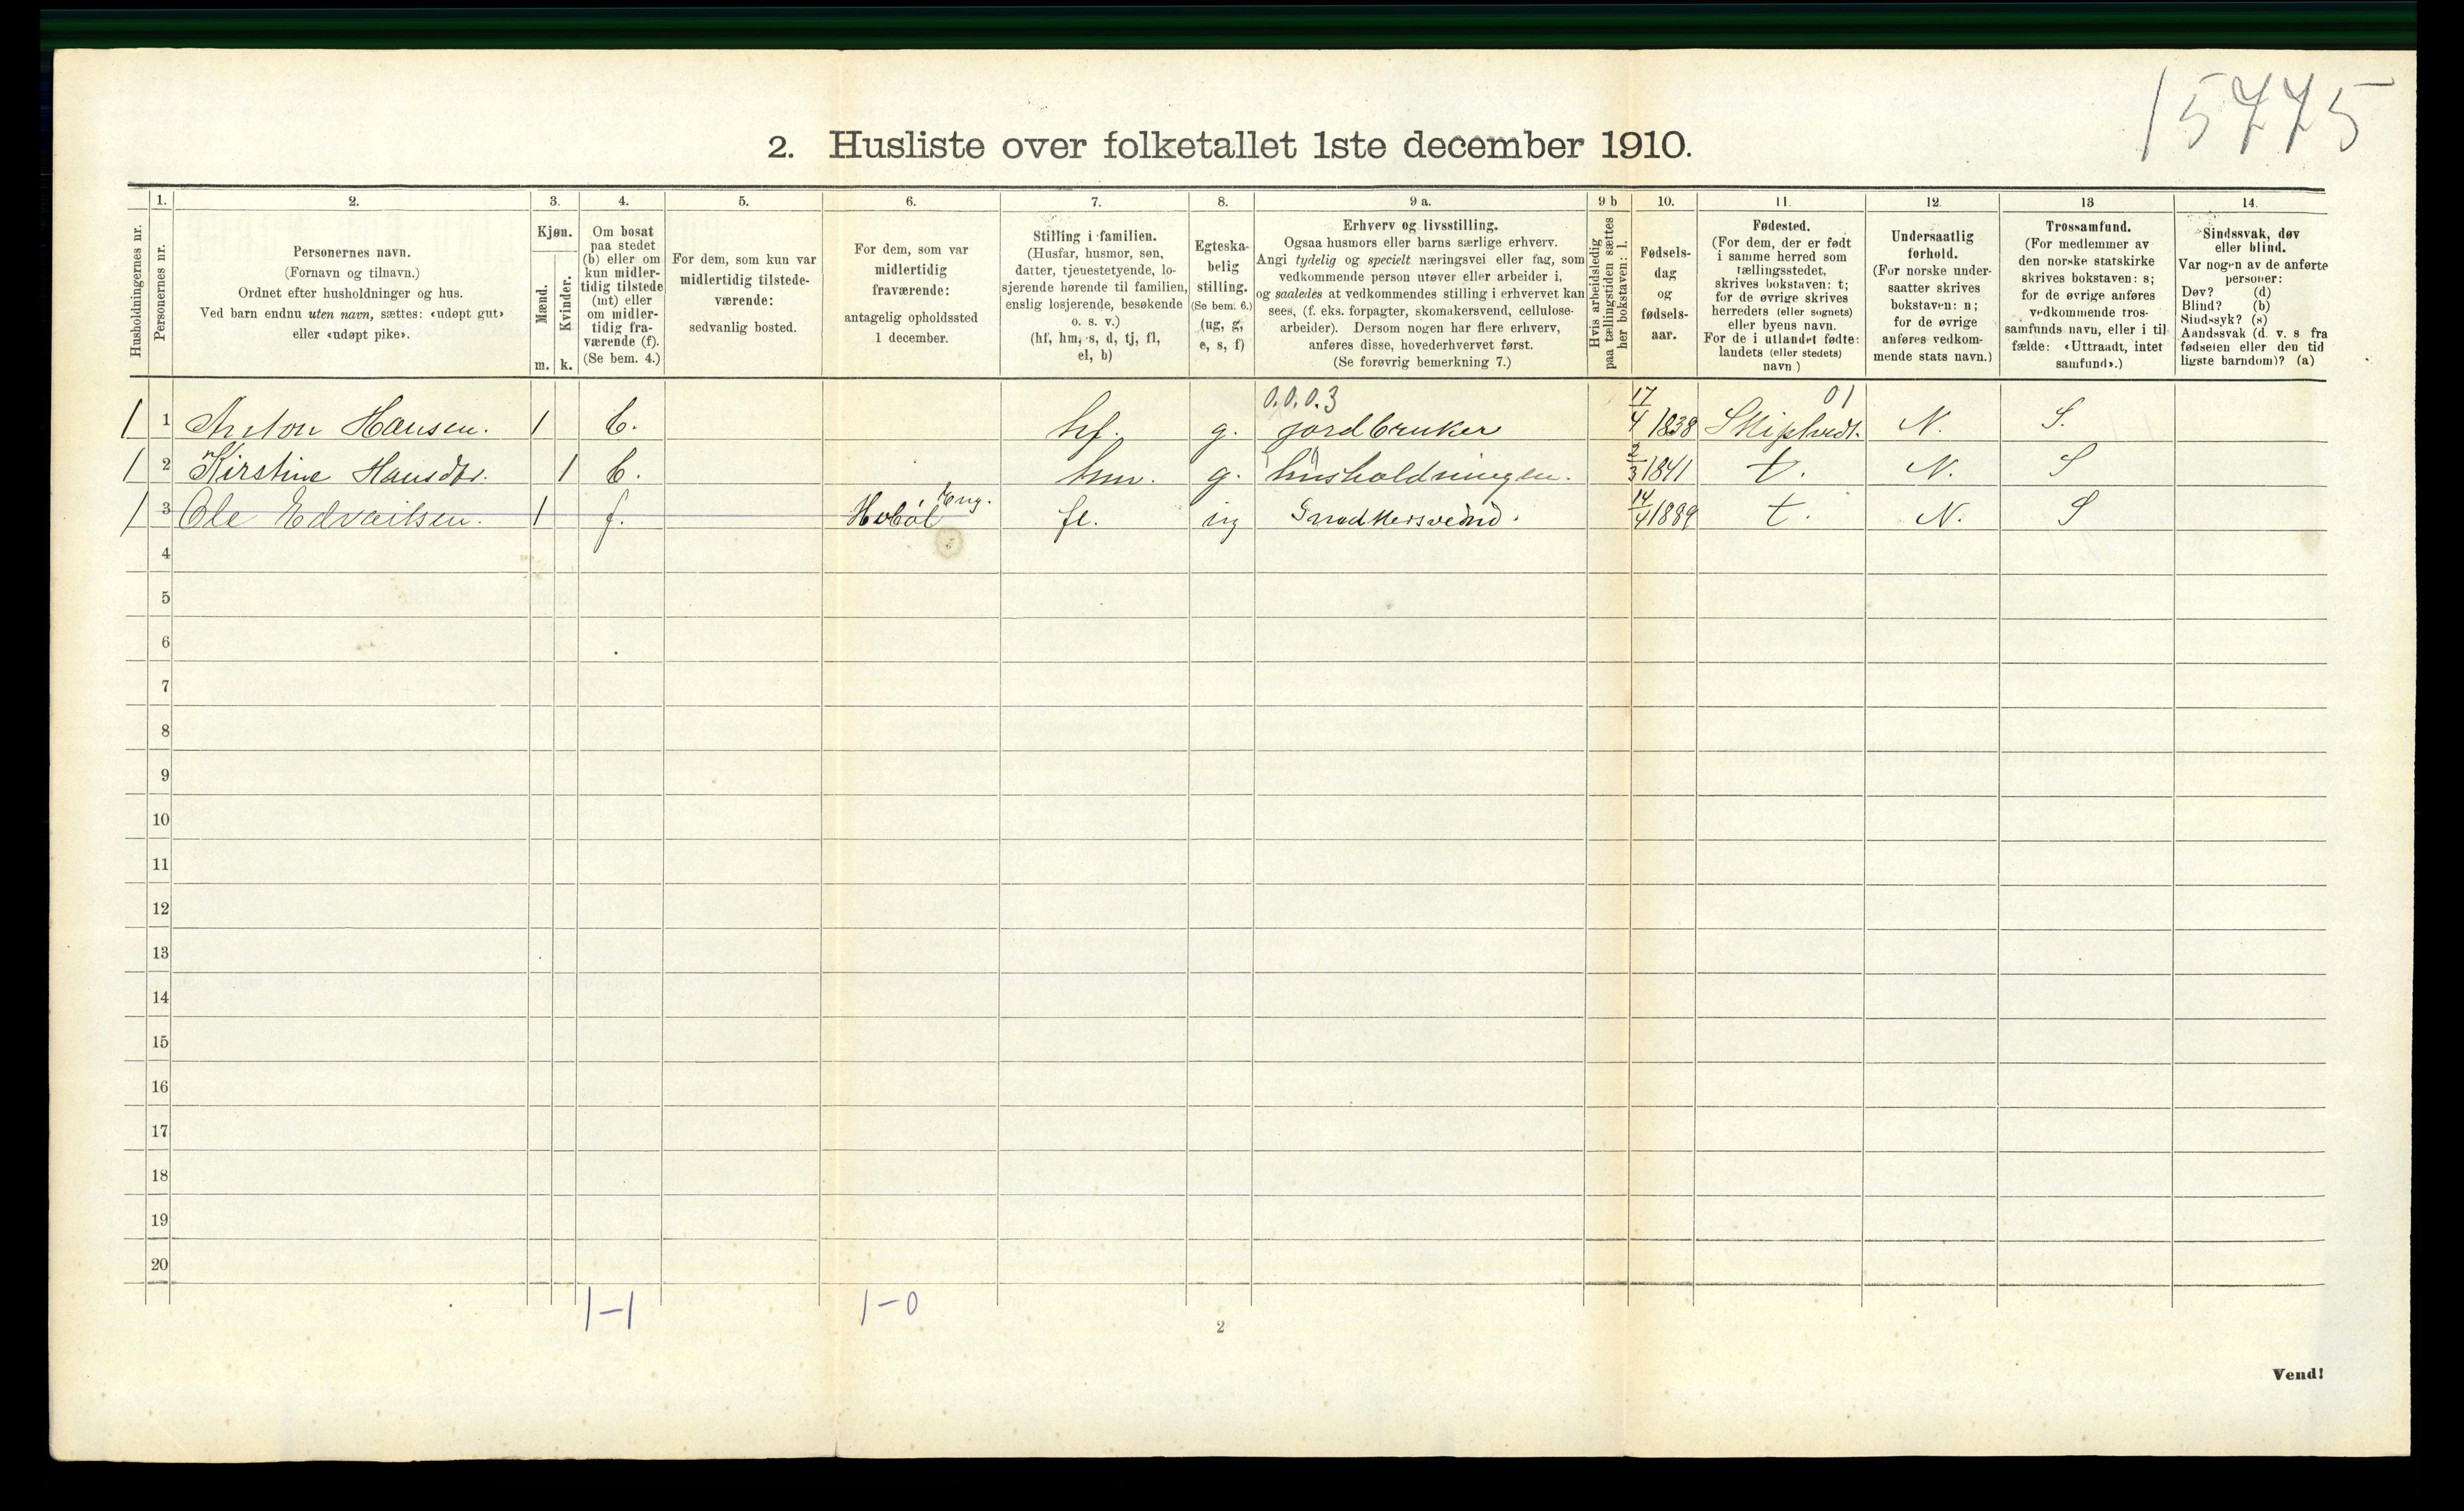 15775
2. Husliste over folketallet 1ste december 1910.
Husholdningernes nr.
1.
Personernes nr.
2.
Personernes navn.
(Fornavn og tilnavn.)
Ordnet efter husholdninger og hus.
Ved barn endnu uten navn, sættes: «udøpt gut»
eller «udøpt pike».
3.
Kjøn.
Mænd.
Kvinder.
m. k.
4.
Om bosat
paa stedet
(b) eller om
kun midler-
tidig tilstede
(mt) eller
om midler-
tidig fra-
værende (f).
(Se bem. 4.)
5.
For dem, som kun var
midlertidig tilstede-
værende:
sedvanlig bosted.
6.
For dem, som var
midlertidig
fraværende:
antagelig opholdssted
1 december.
7.
Stilling i familien.
(Husfar, husmor, søn,
datter, tjenestetyende, lo-
sjerende hørende til familien,
enslig losjerende, besøkende
o. s. v.)
(hf, hm, s, d, tj, fl,
el, b)
8.
Egteska-
belig
stilling.
(Se bem. 6.)
(ug, g,
e, s, f)
9 a.
Erhverv og livsstilling.
Ogsaa husmors eller barns særlige erhverv.
Angi tydelig og specielt næringsvei eller fag, som
vedkommende person utøver eller arbeider i,
og saaledes at vedkommendes stilling i erhvervet kan
sees, (f. eks. forpagter, skomakersvend, cellulose-
arbeider). Dersom nogen har flere erhverv,
anføres disse, hovederhvervet først.
(Se forøvrig bemerkning 7.)
9 b
Hvis arbeidsledig
paa tællingstiden sættes
her bokstaven: l.
10.
Fødsels-
dag
og
fødsels-
aar.
11.
Fødested.
(For dem, der er født
i samme herred som
tællingsstedet,
skrives bokstaven: t;
for de øvrige skrives
herredets (eller sognets)
eller byens navn.
For de i utlandet fødte:
landets (eller stedets)
navn.)
12.
Undersaatlig
forhold.
(For norske under-
saatter skrives
bokstaven: n;
for de øvrige
anføres vedkom-
mende stats navn.)
13
Trossamfund.
(For medlemmer av
den norske statskirke
skrives bokstaven: s;
for de øvrige anføres
vedkommende tros-
samfunds navn, eller i til
fælde: «Uttraadt, intet
samfund».)
14.
Sindssvak, døv
eller blind.
Var nogen av de anførte
personer:
Døv? (d)
Blind? (b)
Sindssyk? (s)
Aandssvak (d. v. s fra
fødselen eller den tid
ligste barndom)? (a)
0.0.0.3 01
1 1 Anton Hansen. 1 b. hf. g. jordbruker 17/4 1838 Skiptvedt. N. S.
1 2 Kirstine Hansdtr. 1 b. hm. g. husholdningen. 2/3 1841 t. N. S
1 3 Ole Edvartsen. 1 f. Hobøl Eng. fl. ug Snedkersvend. 14/4 1889 t. N. S
4
5
6
7
8
9
10
11
12
13
14
15
16
17
18
19
20
1-1 1-0
2
Vend!